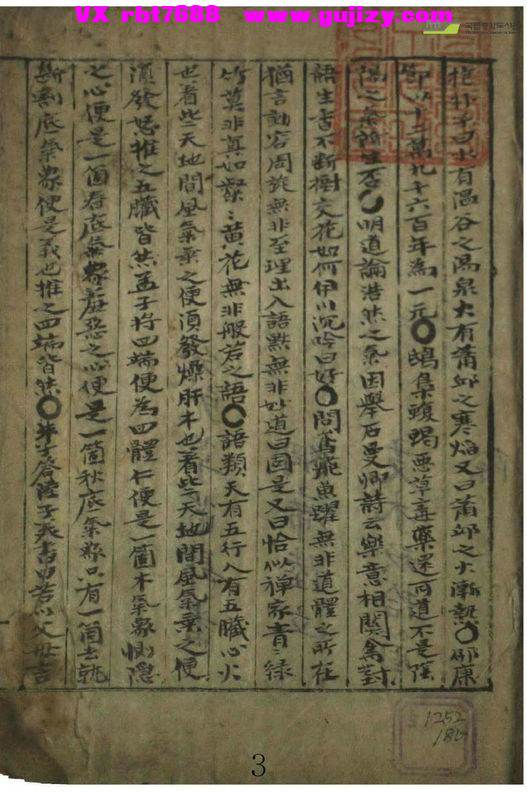 VX rbt7688 www.gujizy.com
抱朴子曰水有温谷之湯泉火有蕭邱之寒焰又曰蕭邱之火漸熱○邵康
節以十二萬九千六百年為一元○鴟梟蝮蝎惡草毒藥還可道不是陰
陽之氣所生否○明道論浩然之氣因舉石曼卿詩云樂意相關禽對
語生香不斷樹交花如何伊川沉吟曰好○問鳶飛魚躍無非道體之所在
猶言動容周旋無非至理出入語默無非妙道曰固是又曰恰似禪家青〻綠
竹莫非真如粲〻黃花無非般若之語○語類天有五行人有五臟心火
也着些天地間風氣乘之便須發燥肝木也着些天地間風氣乘之便
須發怒推之五臟皆然孟子將四端便為四體仁便是一箇木氣象惻隱
之心便是一箇春底氣象羞惡之心便是一箇秋底氣象只有一箇去就
斷割底氣象便是義也推之四端皆然○朱子答陸子美書曰若以父母言
3
1252